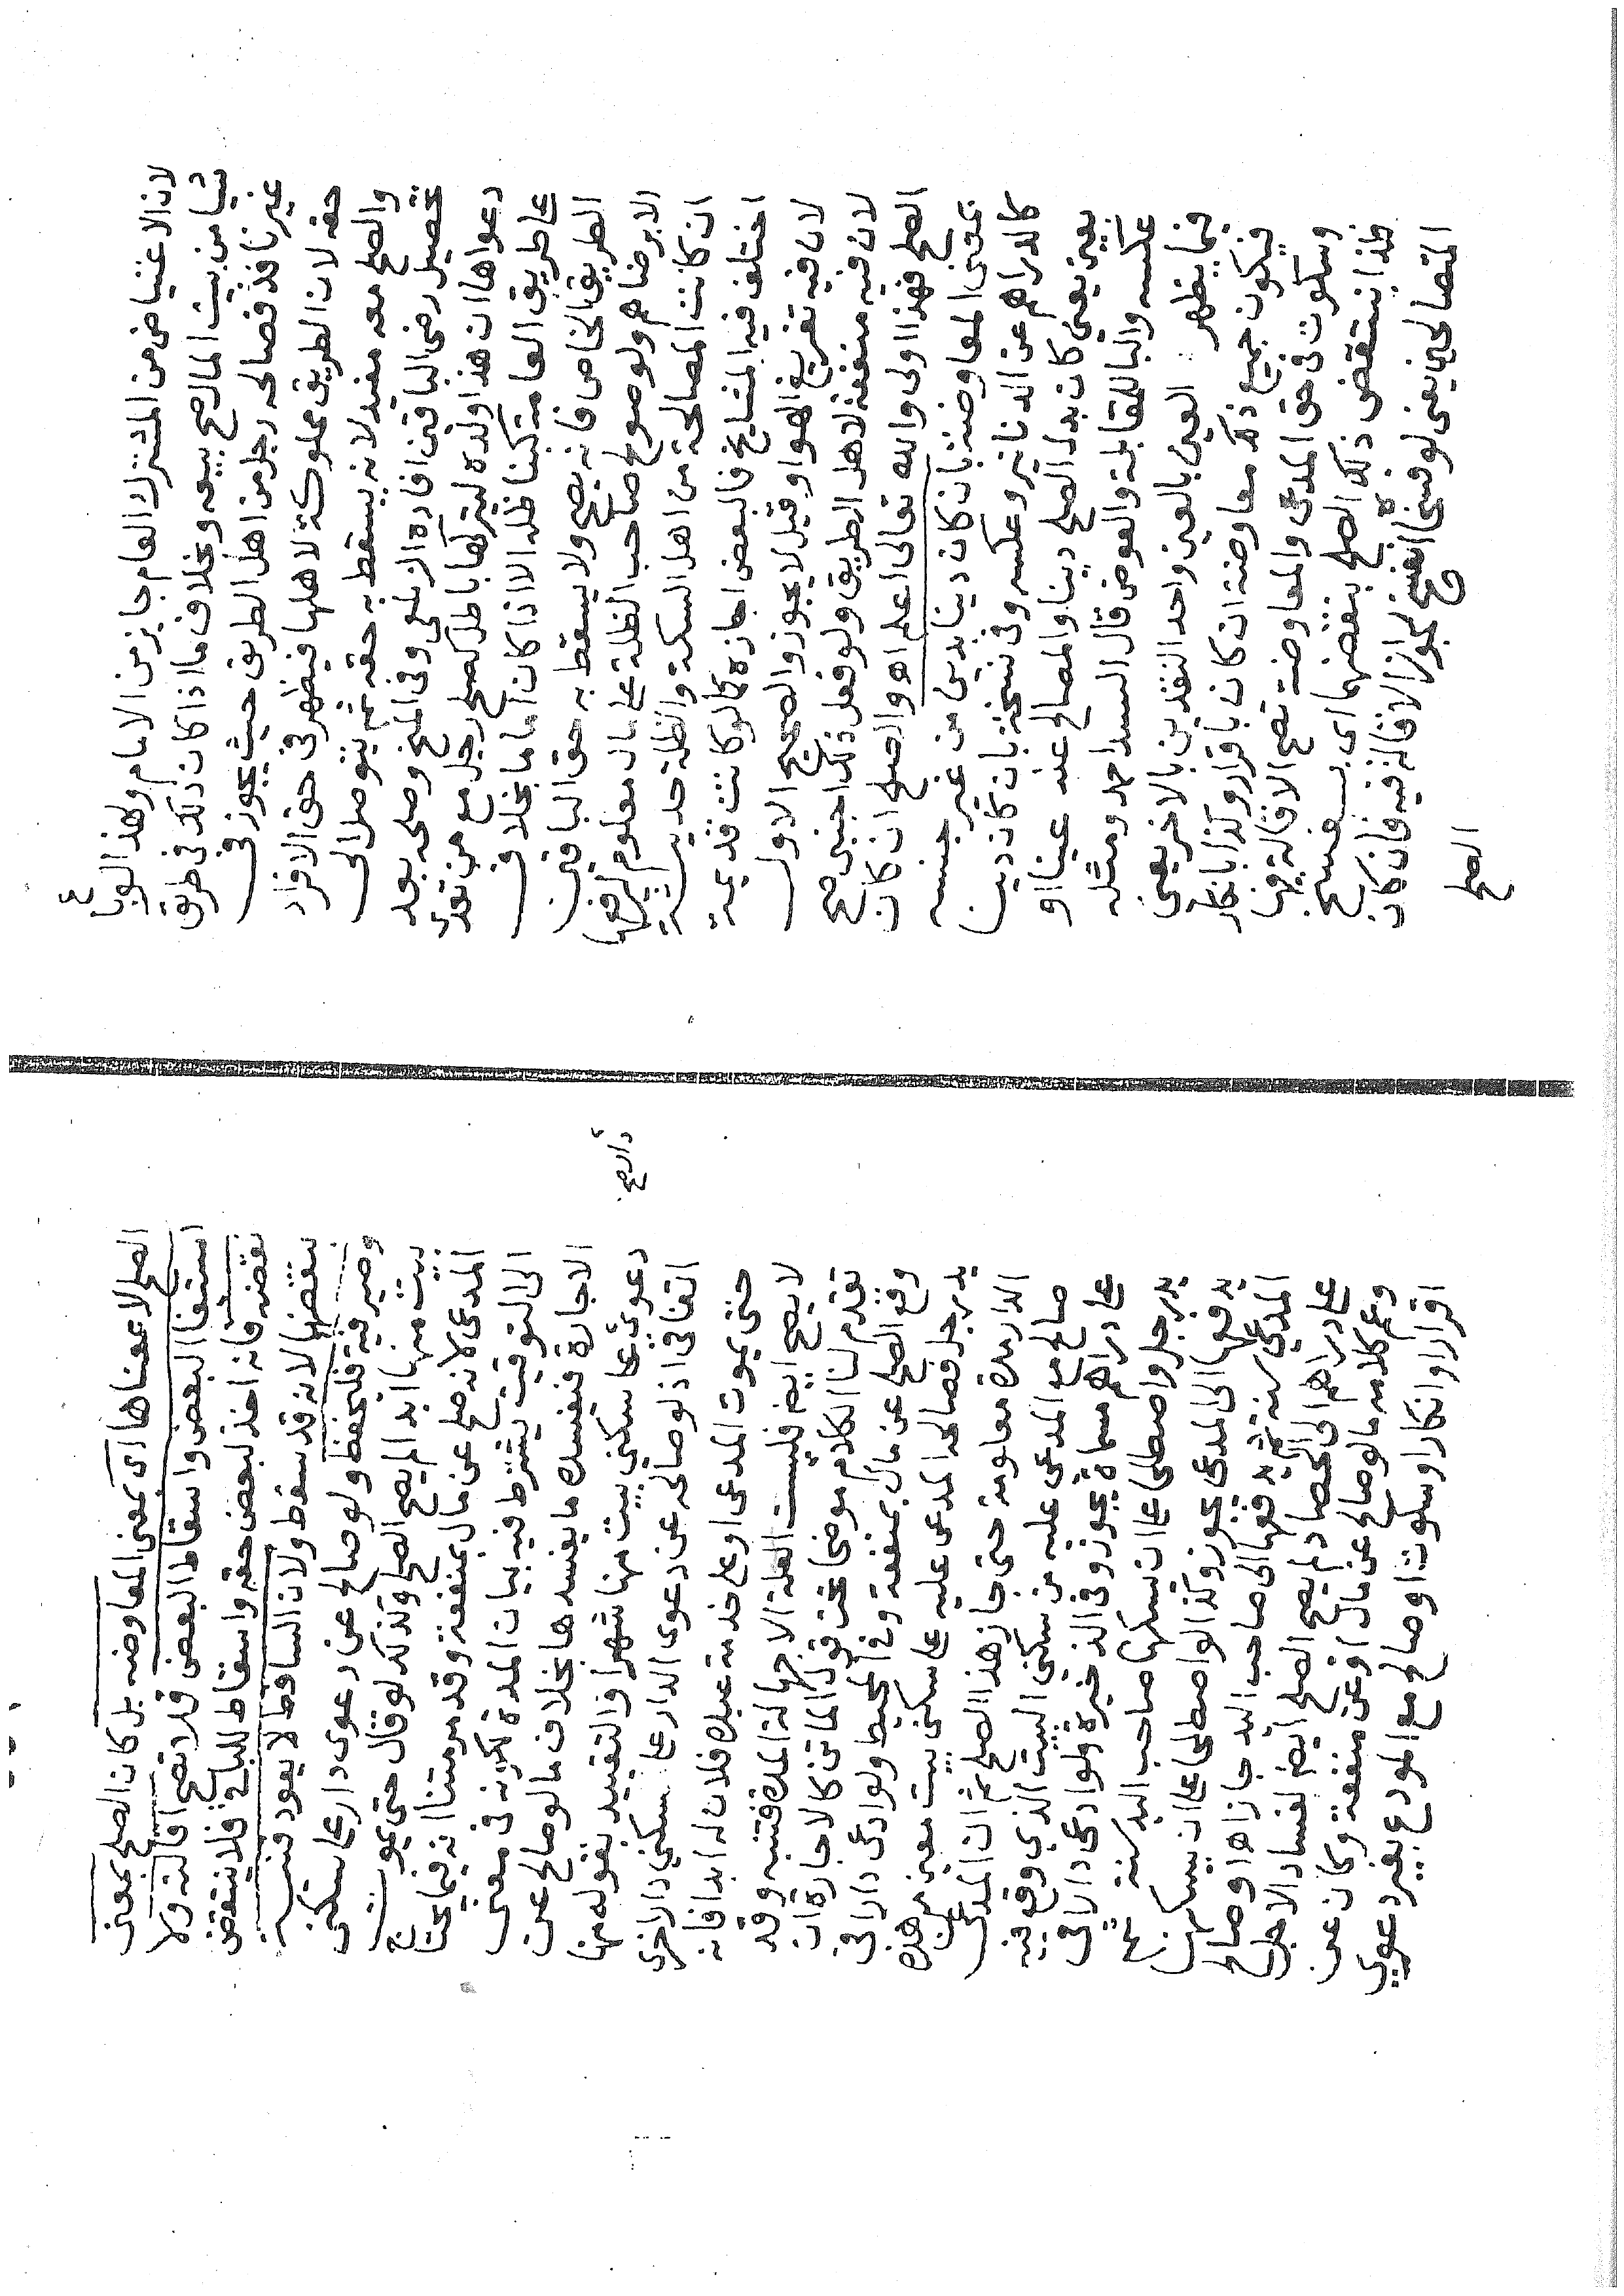 لان الاعتياض من المشترك العام جايز من الامام ولهذا لوباع
شيا من بيت المال صح بيعه وبخلاف ما اذا كان ذلك في طريق
غير نافذ فصالحه رجل من اهل الطريق حيث يجوز في
حقه لان الطريق مملوكة لاهلها فيظهر في حق الافراد
والصلح معه مفيد لانه يسقط به حقه ثم يتوصل الى
تحصيل رضى الباقين افاده الزيلعى وفى المنح وصلحه بعد
دعواها ان هذا ولده ليتركها باطل كصلح رجل مع من تعدى
على طريق العامة كبناء ظلة الا اذا كان اماما بخلاف
الطريق الخاص فانه يصح ولا يسقط به حق الباقين
الا برضاهم ولو صولح صاحب الظلة على مال معلوم لرفعها
ان كانت المصالحة من اهل السكة والظلة حديثة
اختلف فيه المشايخ فالبعض اجازه كما لو كانت قديمة
لان فيه تفريغ الهوا وقيل لا يجوز والصحيح الاول
لان فيه منفعة لاهل الطريق ولو فعل ذلك اجنبى صح
الصلح فهذا اولى والله تعالى اعلم اهـ والصلح ان كان
بمعنى المعاوضة بان كان دينا بدين من غير جنسه
كالدراهم عن الدنانير وعكسه وفى نسخة بان كان دين
بعين يعنى كان بدل الصلح دينا والمصالح عنه عينا او
عكسه والبا للمقابلة والعوض قال السيد احمد ومثله
فيما يظهر العين بالعين واحد النقدين بالاخر يعنى
فيكون جميع ذلك معاوضة ان كان باقرار وكذا بانكار
وسكوت فى حق المدعى والمعاوضة تصح الاقالة فيها
فلذا ينتقض ذلك الصلح بنقضهما اى بفسخ
المتصالحين يعنى لو فسخاه انفسخ لجواز الاقالة فيه فان كان
الصلح
الصلح لا بمعناها اى بمعنى المعاوضه بل كان الصلح بمعنى
استيفا البعض واسقاط البعض فلا تصح اقالته ولا
نقضه فانه اخذ لبعض حقه واسقاط للباقى فلا ينتقض
بنقضهما لانه قد سقط ولان الساقط لا يعود قنيه
وصيرفيه فليحفظ ولو صالح عن دعوى دار على سكنى
بيت منها ابدا لم يصح الصلح وكذلك لو قال حتى يموت
المدعى لانه صلح عن مال بمنفعة وقد مر متنا انه فيما يحتاج
الى التوقيت يشترط فيه بيان المدة لكونه فى معنى
الاجارة فيفسده ما يفسدها بخلاف ما لو صالح عن
دعوى على سكنى بيت منها شهرا والتقييد بقوله منها
اتفاقى اذ لو صالحه عن دعوى الدار على سكنى دار اخرى
حتى يموت المدعى او على خدمة عبده فلان له ابدا فانه
لا يصح ايضا فليست العلة الا جهالة المدة فتنبه وقد
تقدم لنا الكلام موضحا تحت قول الماتن كالاجارة ان
وقع الصلح عن مال بمنفعة وفى المحيط ولو ادعى دارا فى
يد رجل فصالحه المدعى عليه على سكنى بيت معين من هذه
الدار مدة معلومة حتى جاز هذا الصلح ثم ان المدعى
صالح مع المدعى عليه من سكنى البيت الذي وقع فيه
على دراهم مسماة يجوز وفى الذخيرة ولو ادعى دارا فى
يد رجل واصطلحا على ان يسكنها صاحب اليد سنة ثم
يدفعها الى المدعى يجوز وكذا لو اصطلحا على ان يسكن
المدعي سنة ثم يدفعها الى صاحب اليد جاز اهـ او صالح
على دراهم الى الحصاد لم يصح الصلح ايضا لفساد الاجل
وعم كلامه ما لو صالح عن مال او عن منفعة وكان عن
اقرار او انكار او سكوت او صالح مع المودع بغير دعوى